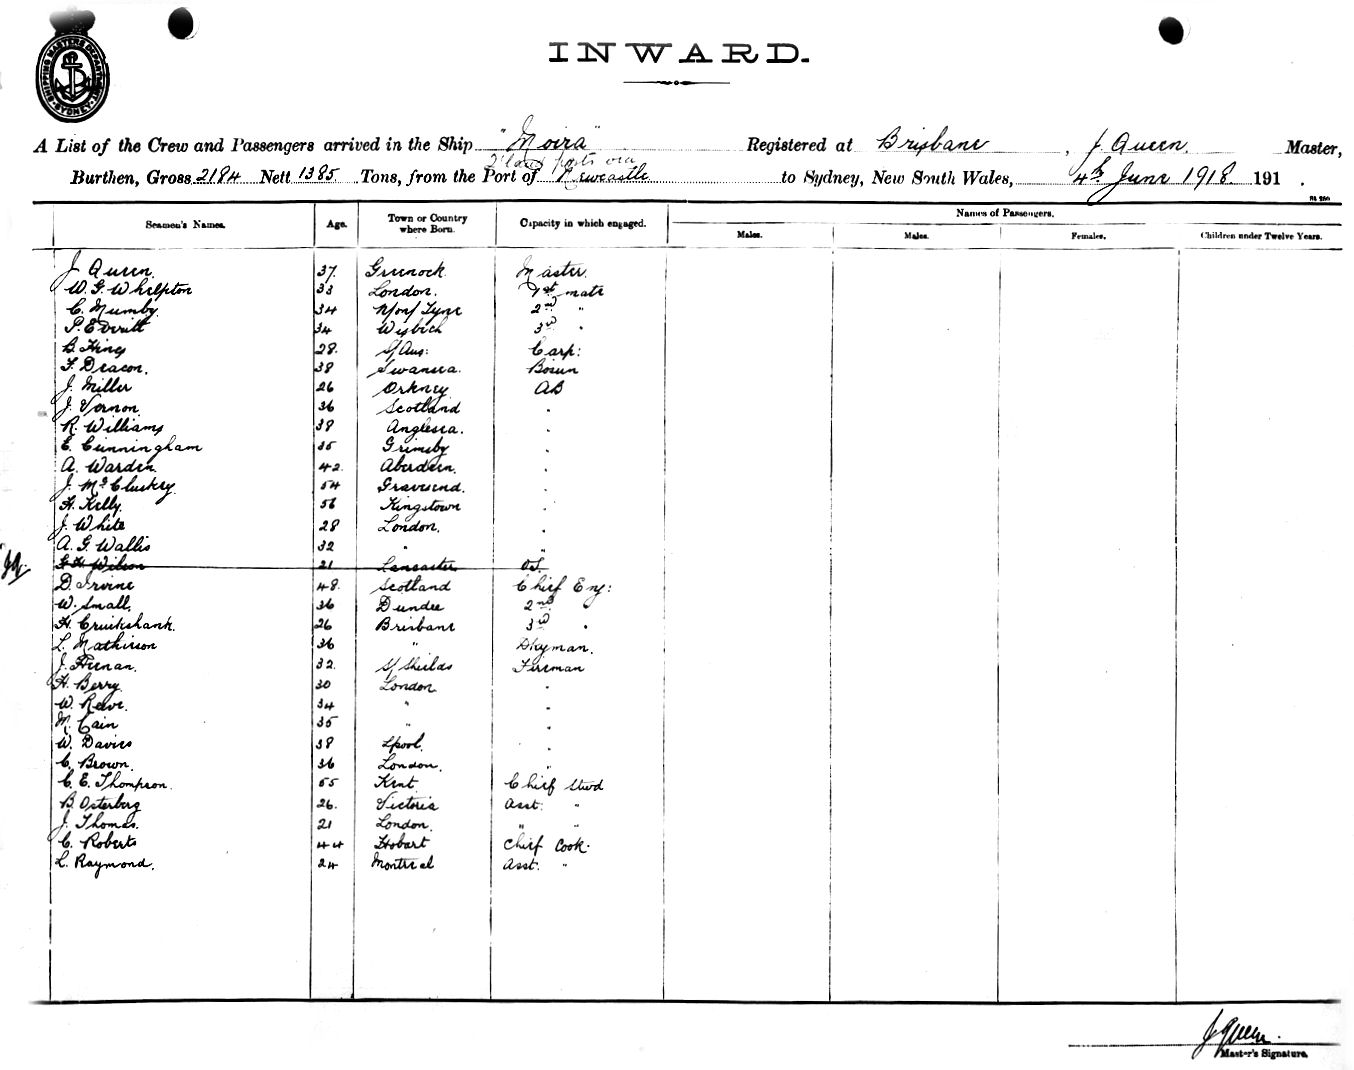 SHIPPING MASTERS DEPARTMENT SYDNEY
INWARD.
A List of the Crew and Passengers arrived in the Ship "Moira" Registered at Brisbane, J Queen. Master,
ports via
Burthen, Gross 2184 Nett 1385 Tons, from the Port of Newcastle to Sydney, New South Wales, 4th June 1918 191 .
Seamen's Names. Age. Town or Country where Born. Capacity in which engaged. Names of Passengers.
Males. Males. Females. Children under Twelve Years.
J Queen. 37. Greenock Master.
W. G. Whelpton 33 London. 1st mate
C. Mumby. 34 N/on/Tyne 2nd "
P. Everitt 34 Wisbich 3rd "
B. Hines 28. S/Aus: Carp:
F. Deacon. 38 Swansea. Bosun
J. Miller 26 Orkney AB
J. Vernon. 36 Scotland "
R. Williams 38 Anglesea. "
E. Cunningham 35 Grimsby "
A. Warden. 42. Aberdeen. "
J. McCluskey. 54 Gravesend. "
H. Kelly. 56 Kingstown "
J. White 28 London. "
A. G. Wallis 32 " "
JQ. G. H. Wilson 21 Lancaster O.S.
D. Irvine 48. Scotland Chief Eng:
W. Small. 36 Dundee 2nd "
H. Cruikshank. 26 Brisbane 3rd "
L. Mathieson 36 " Dkyman.
J. Heenan. 32. S/Shields Fireman
H. Berry. 30 London "
W. Reeve. 34 " "
M. Cain 35 " "
W. Davies 38 Lpool. "
C. Brown. 36 London. "
C. E. Thompson. 55 Kent Chief Stwd
B. Osterberg 26. Victoria Asst. "
J. Thomas. 21 London. " "
C. Roberts 44 Hobart Chief Cook.
L. Raymond. 24 Montreal Asst. "
J Queen.
Master's Signature.